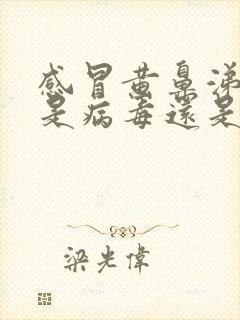 感冒黄鼻涕
是病毒還是
梁光偉